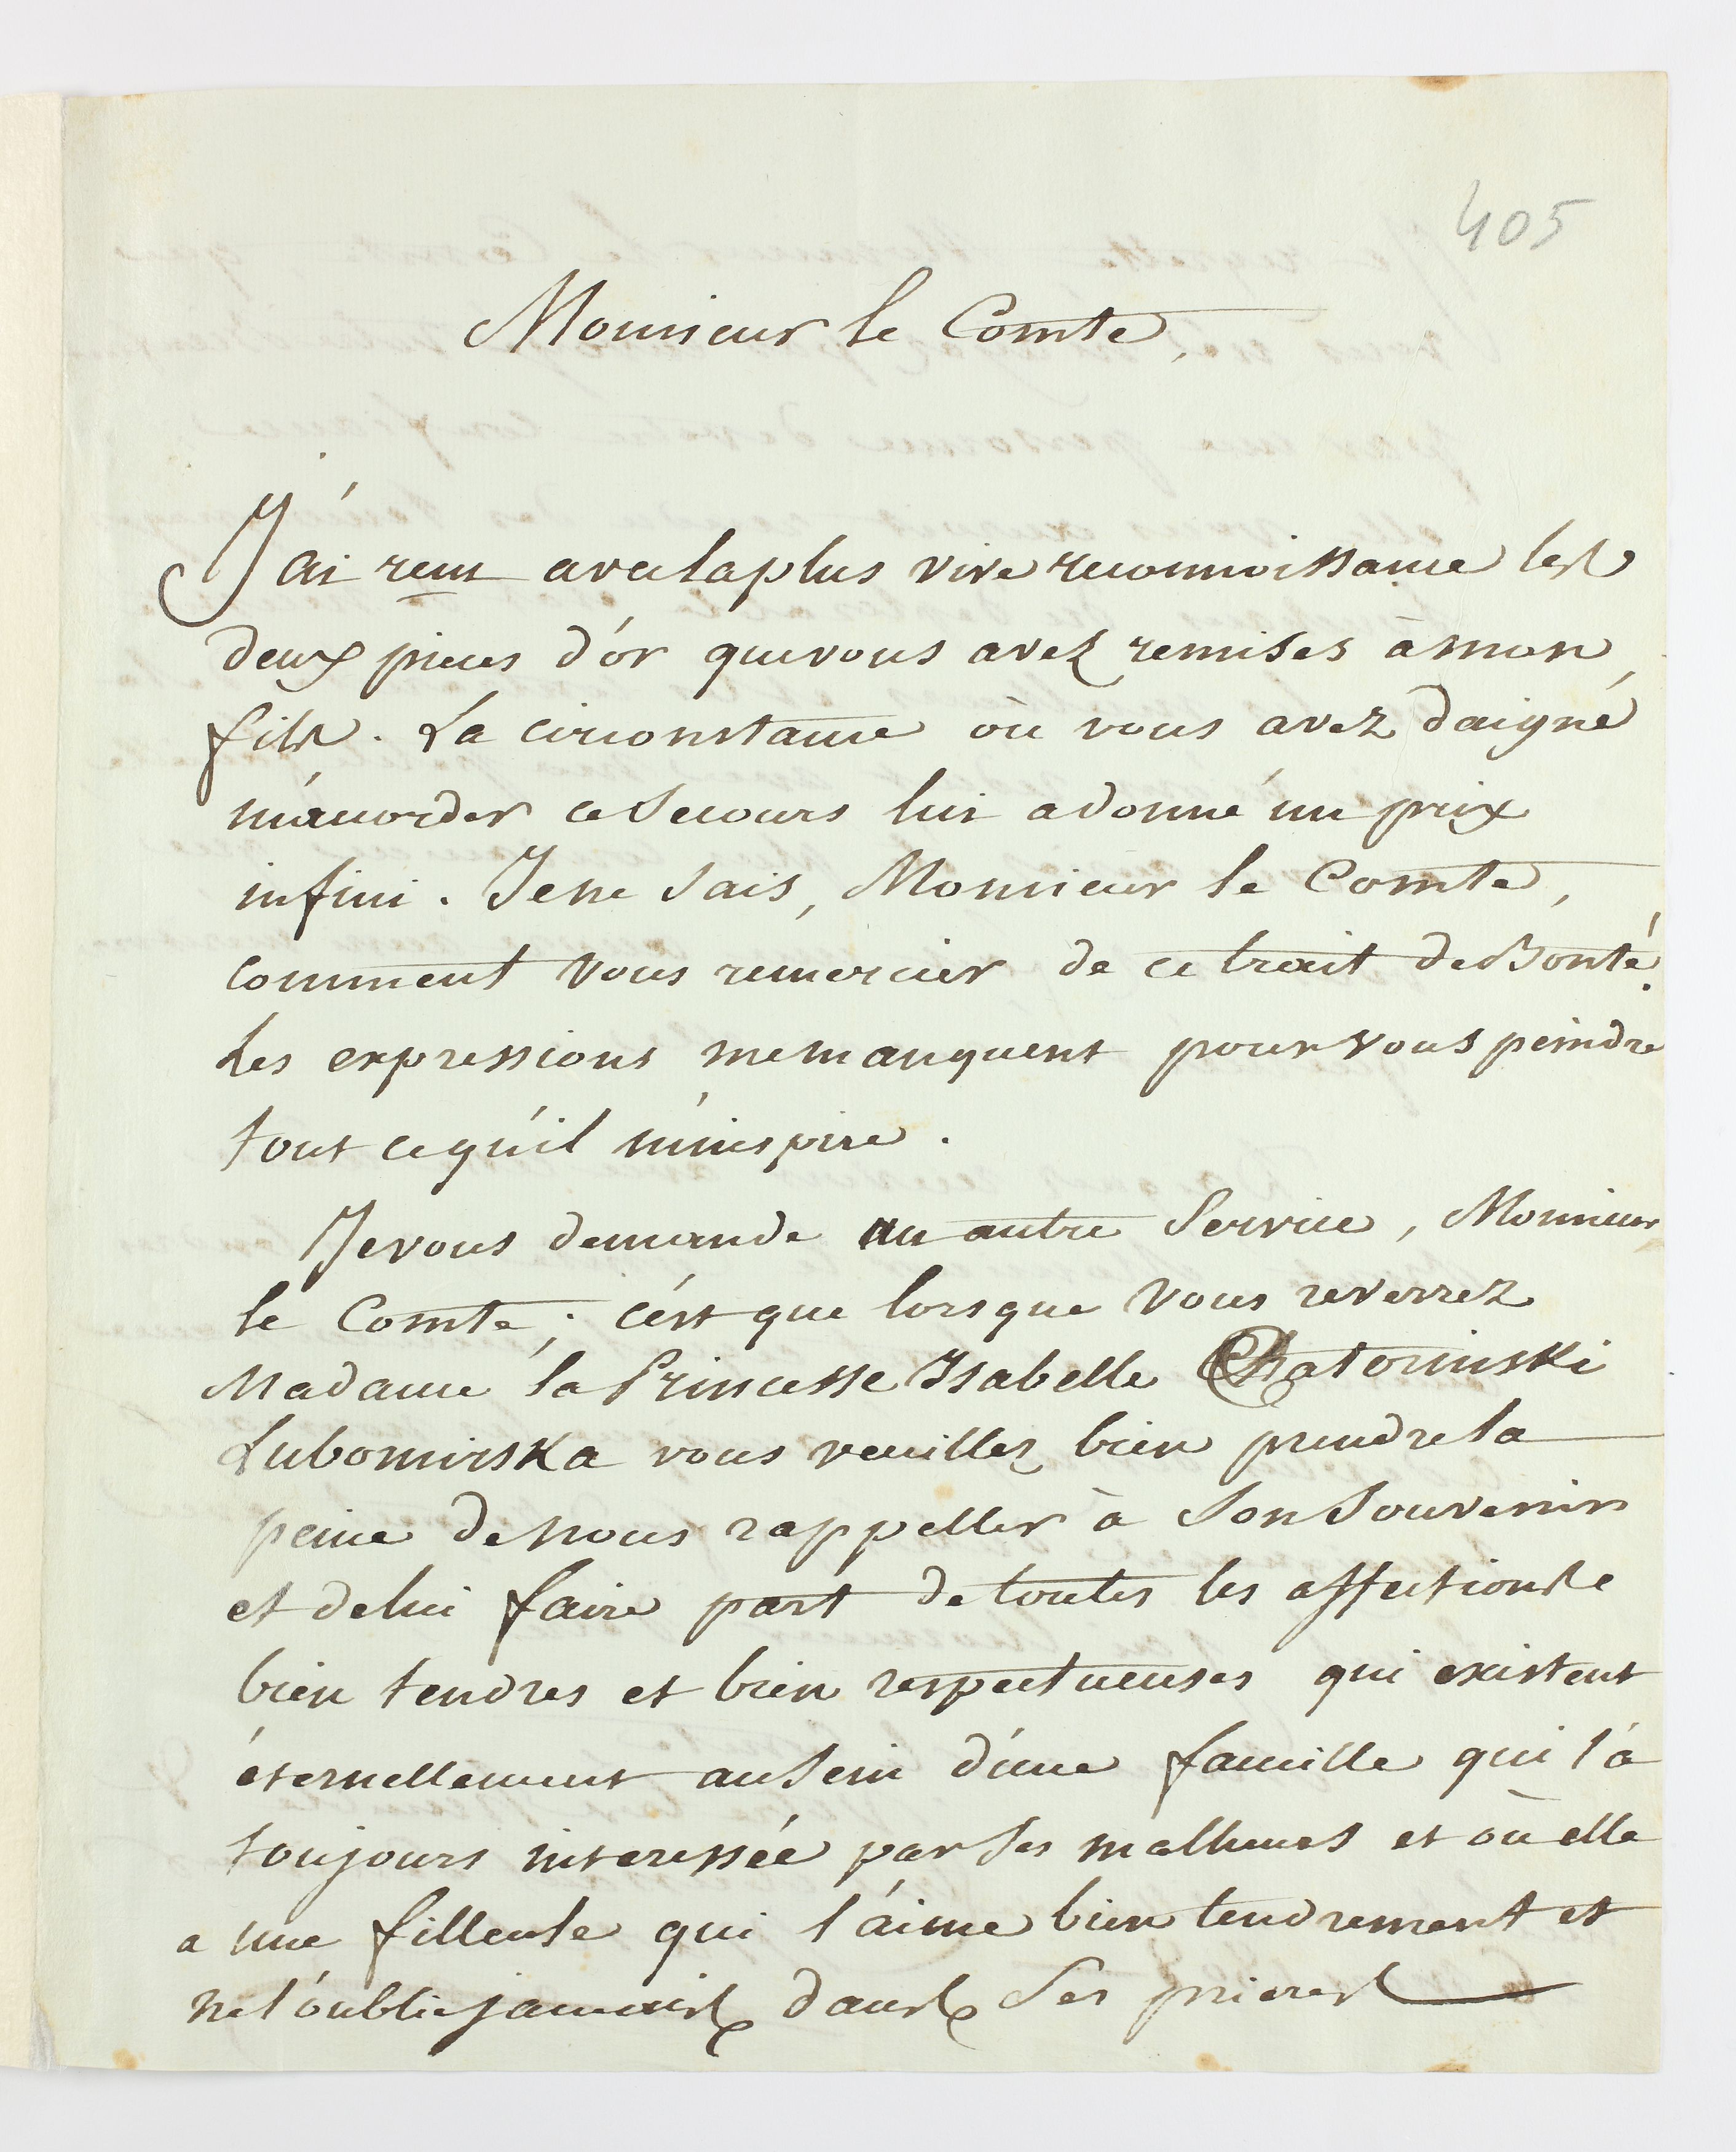 405
Monsieur le Comte,
J'ai recu avec la plus vive reconnoissance les
deux pieces d'or que vous avez remises à mon
fils. La circonstance où vous avez daigné
m'accorder ce secours lui a donné un prix
infini. Je ne sais, Monsieur le Comte,
comment vous remercier de ce trait de Bonté.
Les expressions me manquent pour vous peindre
tout ce qu'il m'inspire.
Je vous demande un autre service, Monsieur
le Comte; c'est que lorsque vous reverrez
Madame la Princesse Isabelle Chatorinski
Lubomirska vous veuillez bien prendre la
peine de nous rappeller à son souvenir
et de lui faire part de toutes les affections
bien tendres et bien respectueuses qui existent
éternellement au sein d'une famille qui l'a
toujours interessée par ses malheurs et où elle
a une filleule qui l'aime bien tendrement et
ne l'oublie jamais dans ses prieres